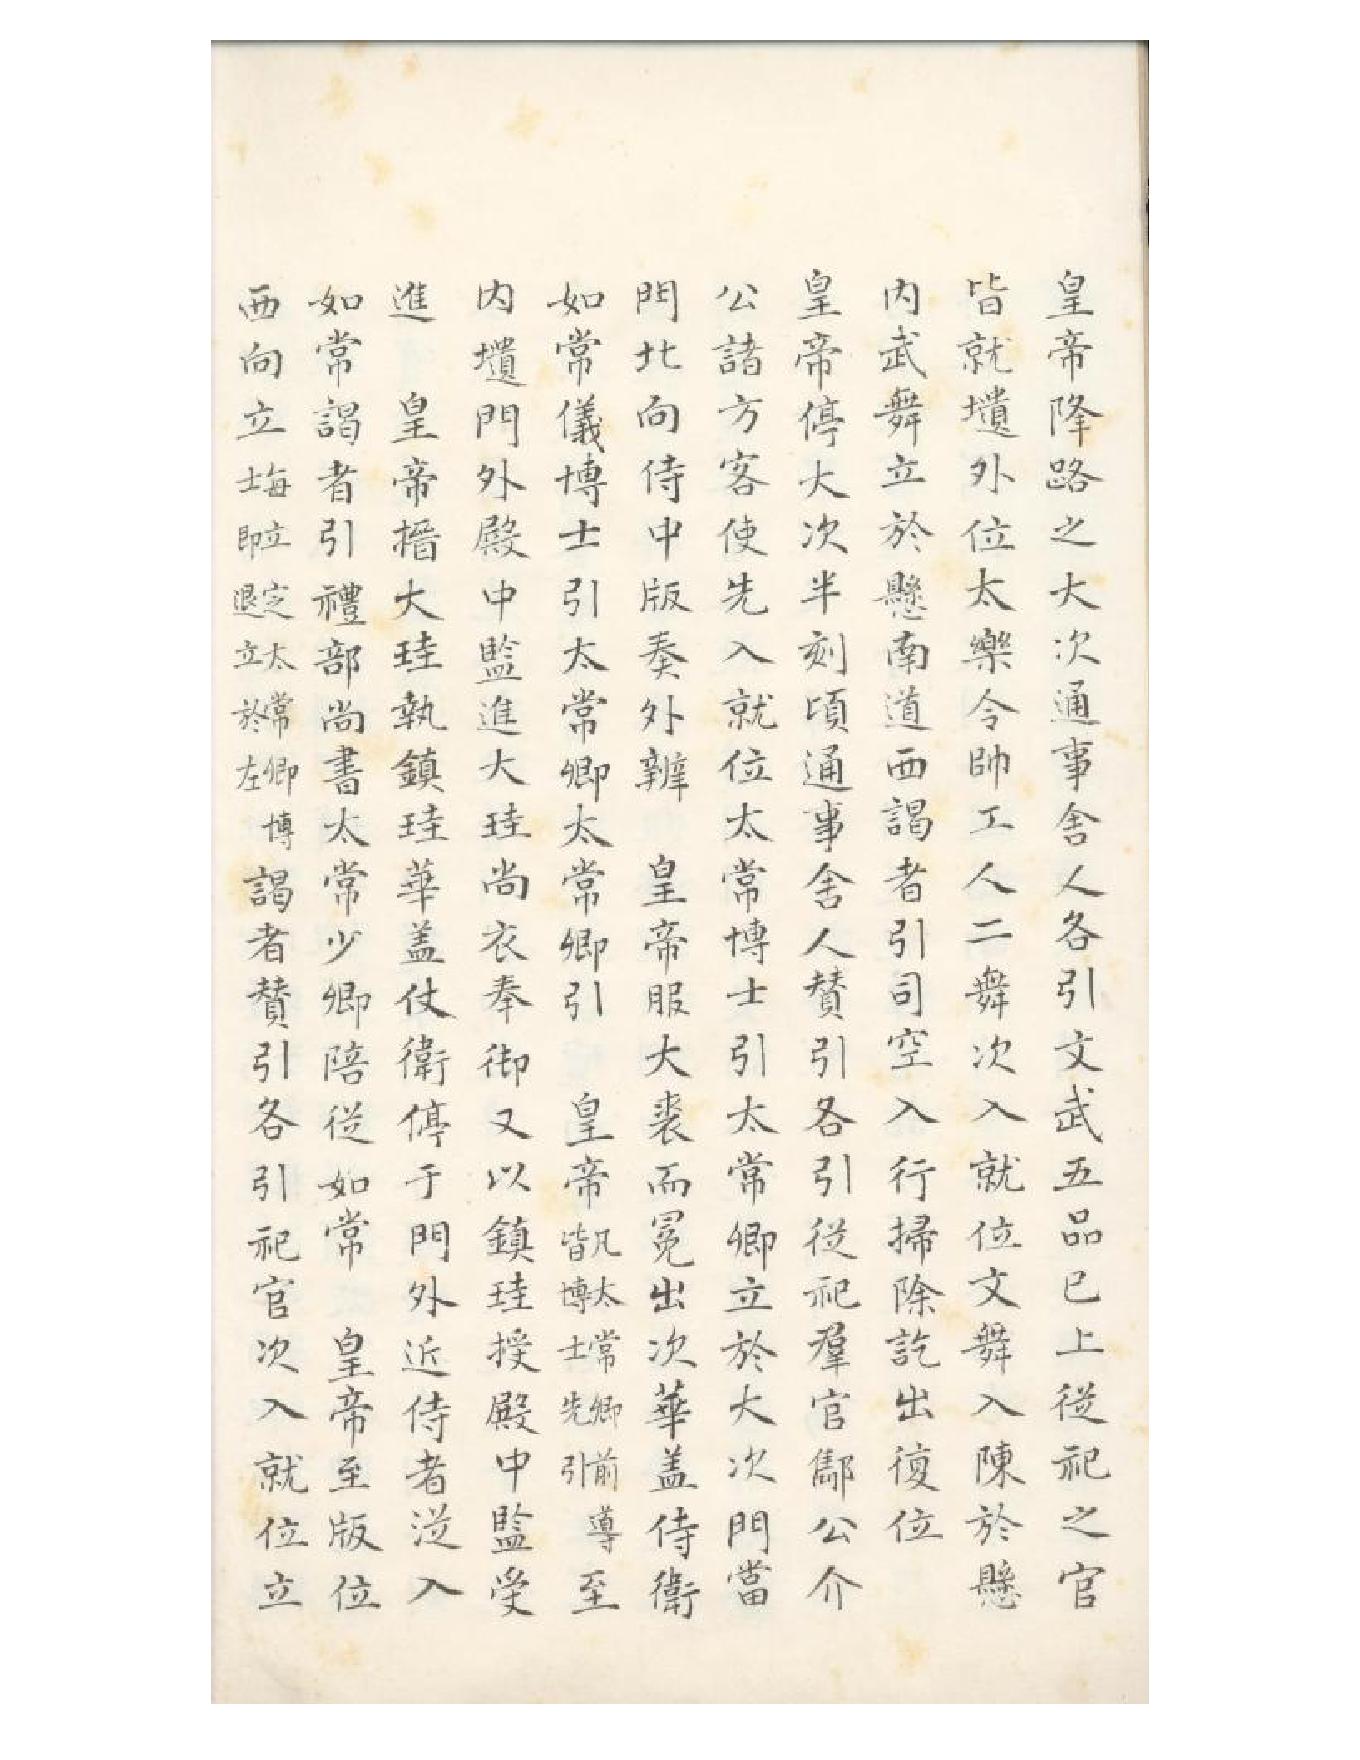 皇帝降路之大次通事舍人各引文武五品已上從祀之官
皆就壝外位太樂令帥工人二舞次入就位文舞入陳於懸
内武舞立於懸南道西謁者引司空入行掃除訖出復位
皇帝停大次半刻頃通事舍人贊引各引從祀羣官鄘公介
公諸方客使先入就位太常博士引太常卿立於大次門當
門北向侍中版奏外辦　皇帝服大裘而冕出次華盖侍衛
如常儀博士引太常卿太常卿引　皇帝凡太常卿前導皆博士先引至
内壝門外殿中監進大珪尚衣奉御又以鎮珪授殿中監受
進　皇帝搢大珪執鎮珪華盖仗衛停于門外近侍者從入
如常謁者引禮部尚書太常少卿陪從如常　皇帝至版位
西向立每立定太常卿博士即退立於左謁者贊引各引祀官次入就位立